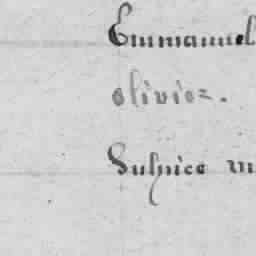 Emmanuel
olivier.
Sulpice m